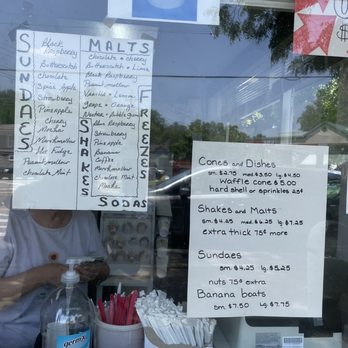 SUNDAES
Black
Raspberry
Butterscotch
Chocolate
Strawberry
Pineapple
Cherry
Mocha
Marshmallow
Hot Fudge
Peanutmallow
Chocolate Mint
MALTS
SHAKES
FREEZES
SODAS
Chocolate + Cherry
Butterscotch + Lime
Black Raspberry
Peanutmallow
Vanilla + Lemon
Grape + Orange
Strawberry
Pineapple
Banana
Coffee
Marshmallow
Chocolate Mint
Mocha
Cones and Dishes
sm. $2.75 med. $3.50 lg. $4.50
Waffle cone $5.00
hard shell or sprinkles 25¢
Shakes and Malts
sm. $4.25 med. $6.25 lg. $7.25
extra thick 75¢ more
Sundaes
sm. $4.25 lg. $5.25
nuts 75¢ extra
Banana boats
sm. $7.50 lg. $7.75
germx